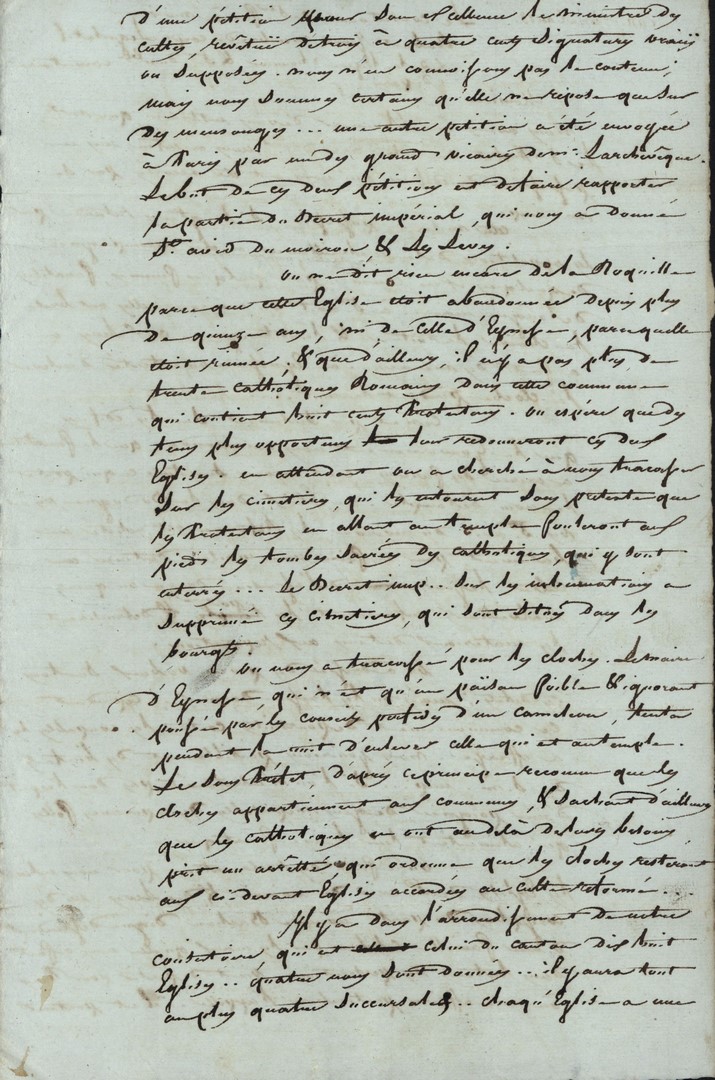 d'une pétition pour Son excellence le ministre des
cultes, revêtüe de trois à quatre cents Signatures vraies
ou Supposées. nous n'en connoissons pas le contenu,
mais nous Sommes certains qu'elle ne repose que Sur
des mensonges... une autre pétition a été envoyée
à Paris par un des grands vicaires de mr. Larchevêque.
Le but de ces deux pétitions est de faire rapporter
la partie du Décret impérial, qui nous a donné
St. avid du moiron, & Les Leves.
on ne dit rien encore de la Roquille
parce que cette Eglise étoit abandonnée depuis plus
de quinze ans, ni de celle d'Eynesse, parce quelle
étoit ruinée, & que d'ailleurs, il n'y a pas plus de
trente Catholiques Romains dans cette commune
qui contient huit cents Protestans. on espère que des
tems plus opportuns leur redonneront ces deux
Eglises. en attendant on a cherché à nous tracasser
Sur les cimetières, qui les entourent Sous prétexte que
les Protestans en allant au temple fouleront aux
pieds les tombes Sacrées des catholiques, qui y sont
enterrés... Le Decret imp.. Sur les inhumations a
Supprimé ces cimetières, qui Sont Situés dans les
bourgs.
on nous a tracassé pour les cloches. Le maire
d'Eynesse, qui n'est qu'un païsan foible & ignorant
poussé par les conseils perfides d'un cameleon, tenta
pendant la nuit d'enlever celle qui est au temple.
Le Sous Préfet d'après ce principe reconnu que les
cloches appartiennent aux communes, & Sachant d'ailleurs
que les catholiques en ont au delà de leurs besoins
prit un arrêtté qui ordonne que les cloches resteront
aux ci-devant Eglises accordées au culte réformé.
Il y a dans l'arrondissement de notre
consistoire, qui est celui du canton dix huit
Eglises.. quatre nous Sont données... il y aura tout
au plus quatre Succursales.. chaque Eglise a une